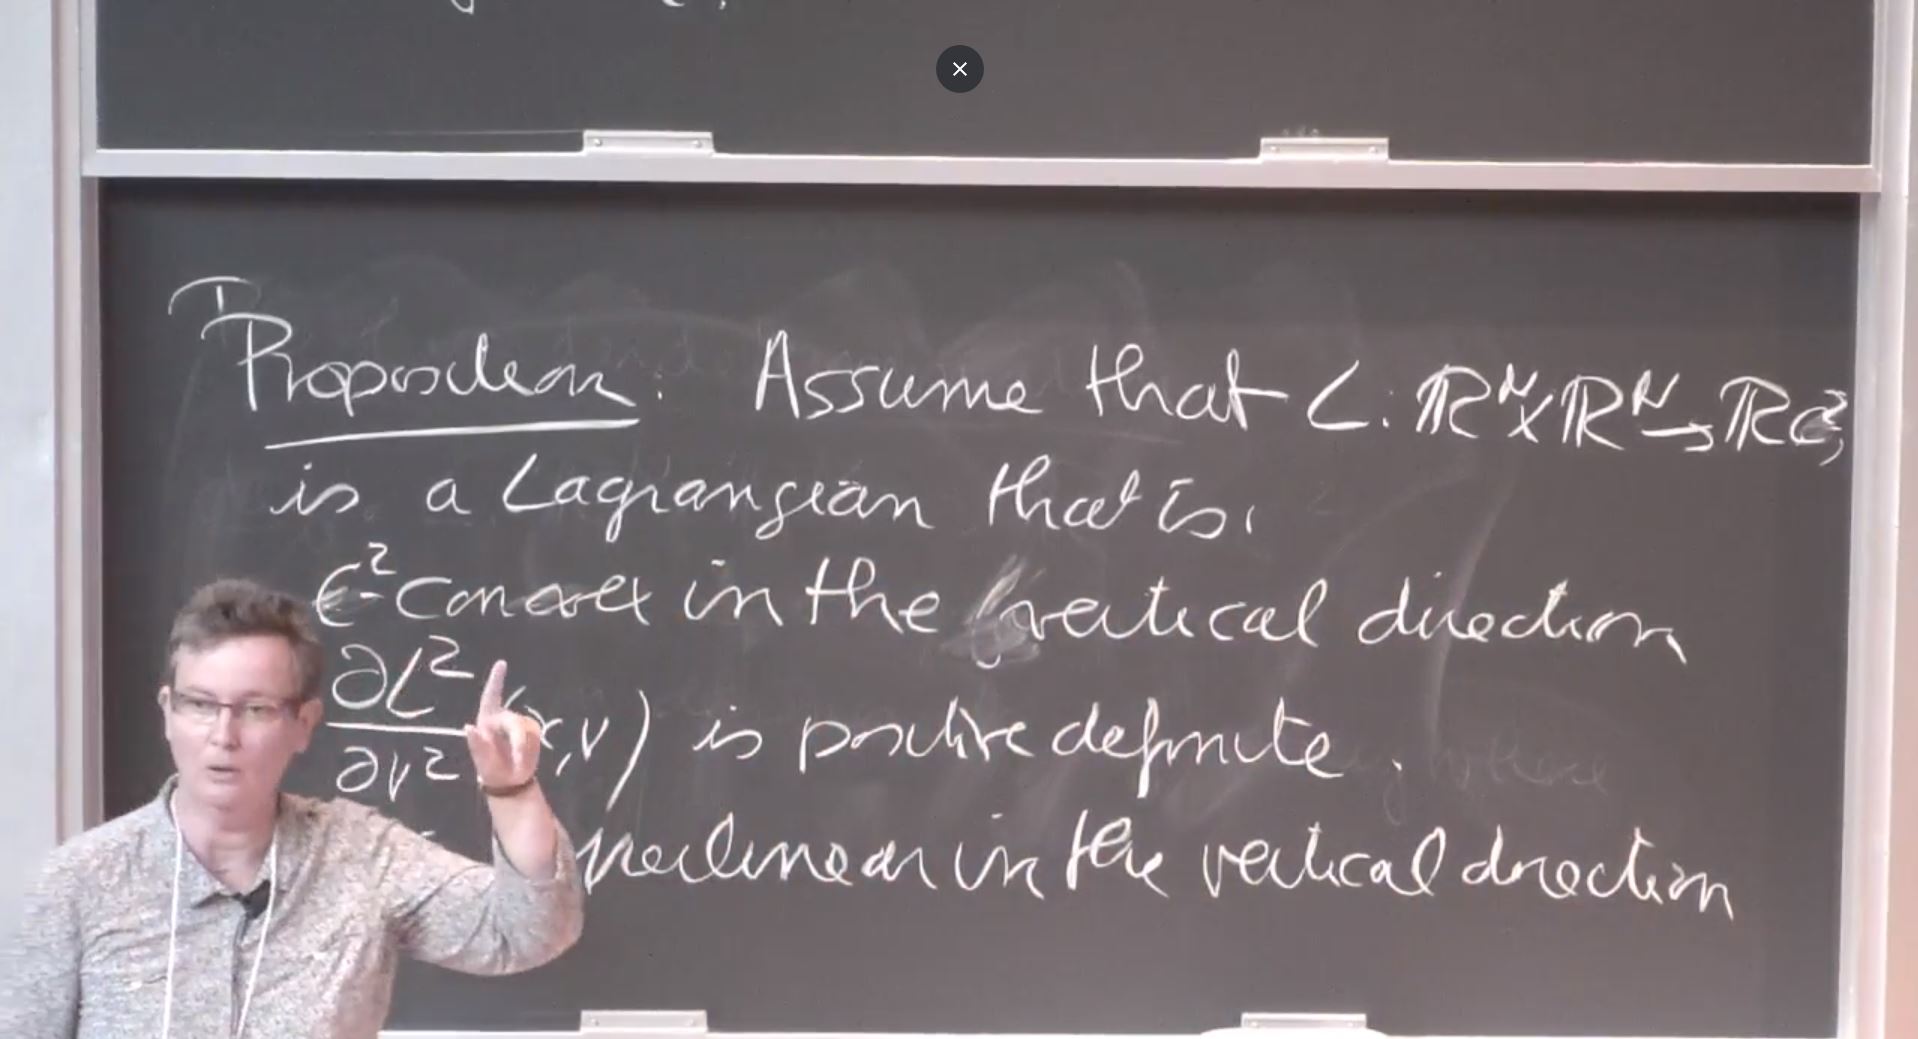 Proposition: Assume that L: ℝᴺ×ℝᴺ→ℝ C²,
is a Lagrangian that is:
C²-convex in the vertical direction
∂L²/∂v² (x,v) is positive definite.
in the vertical direction